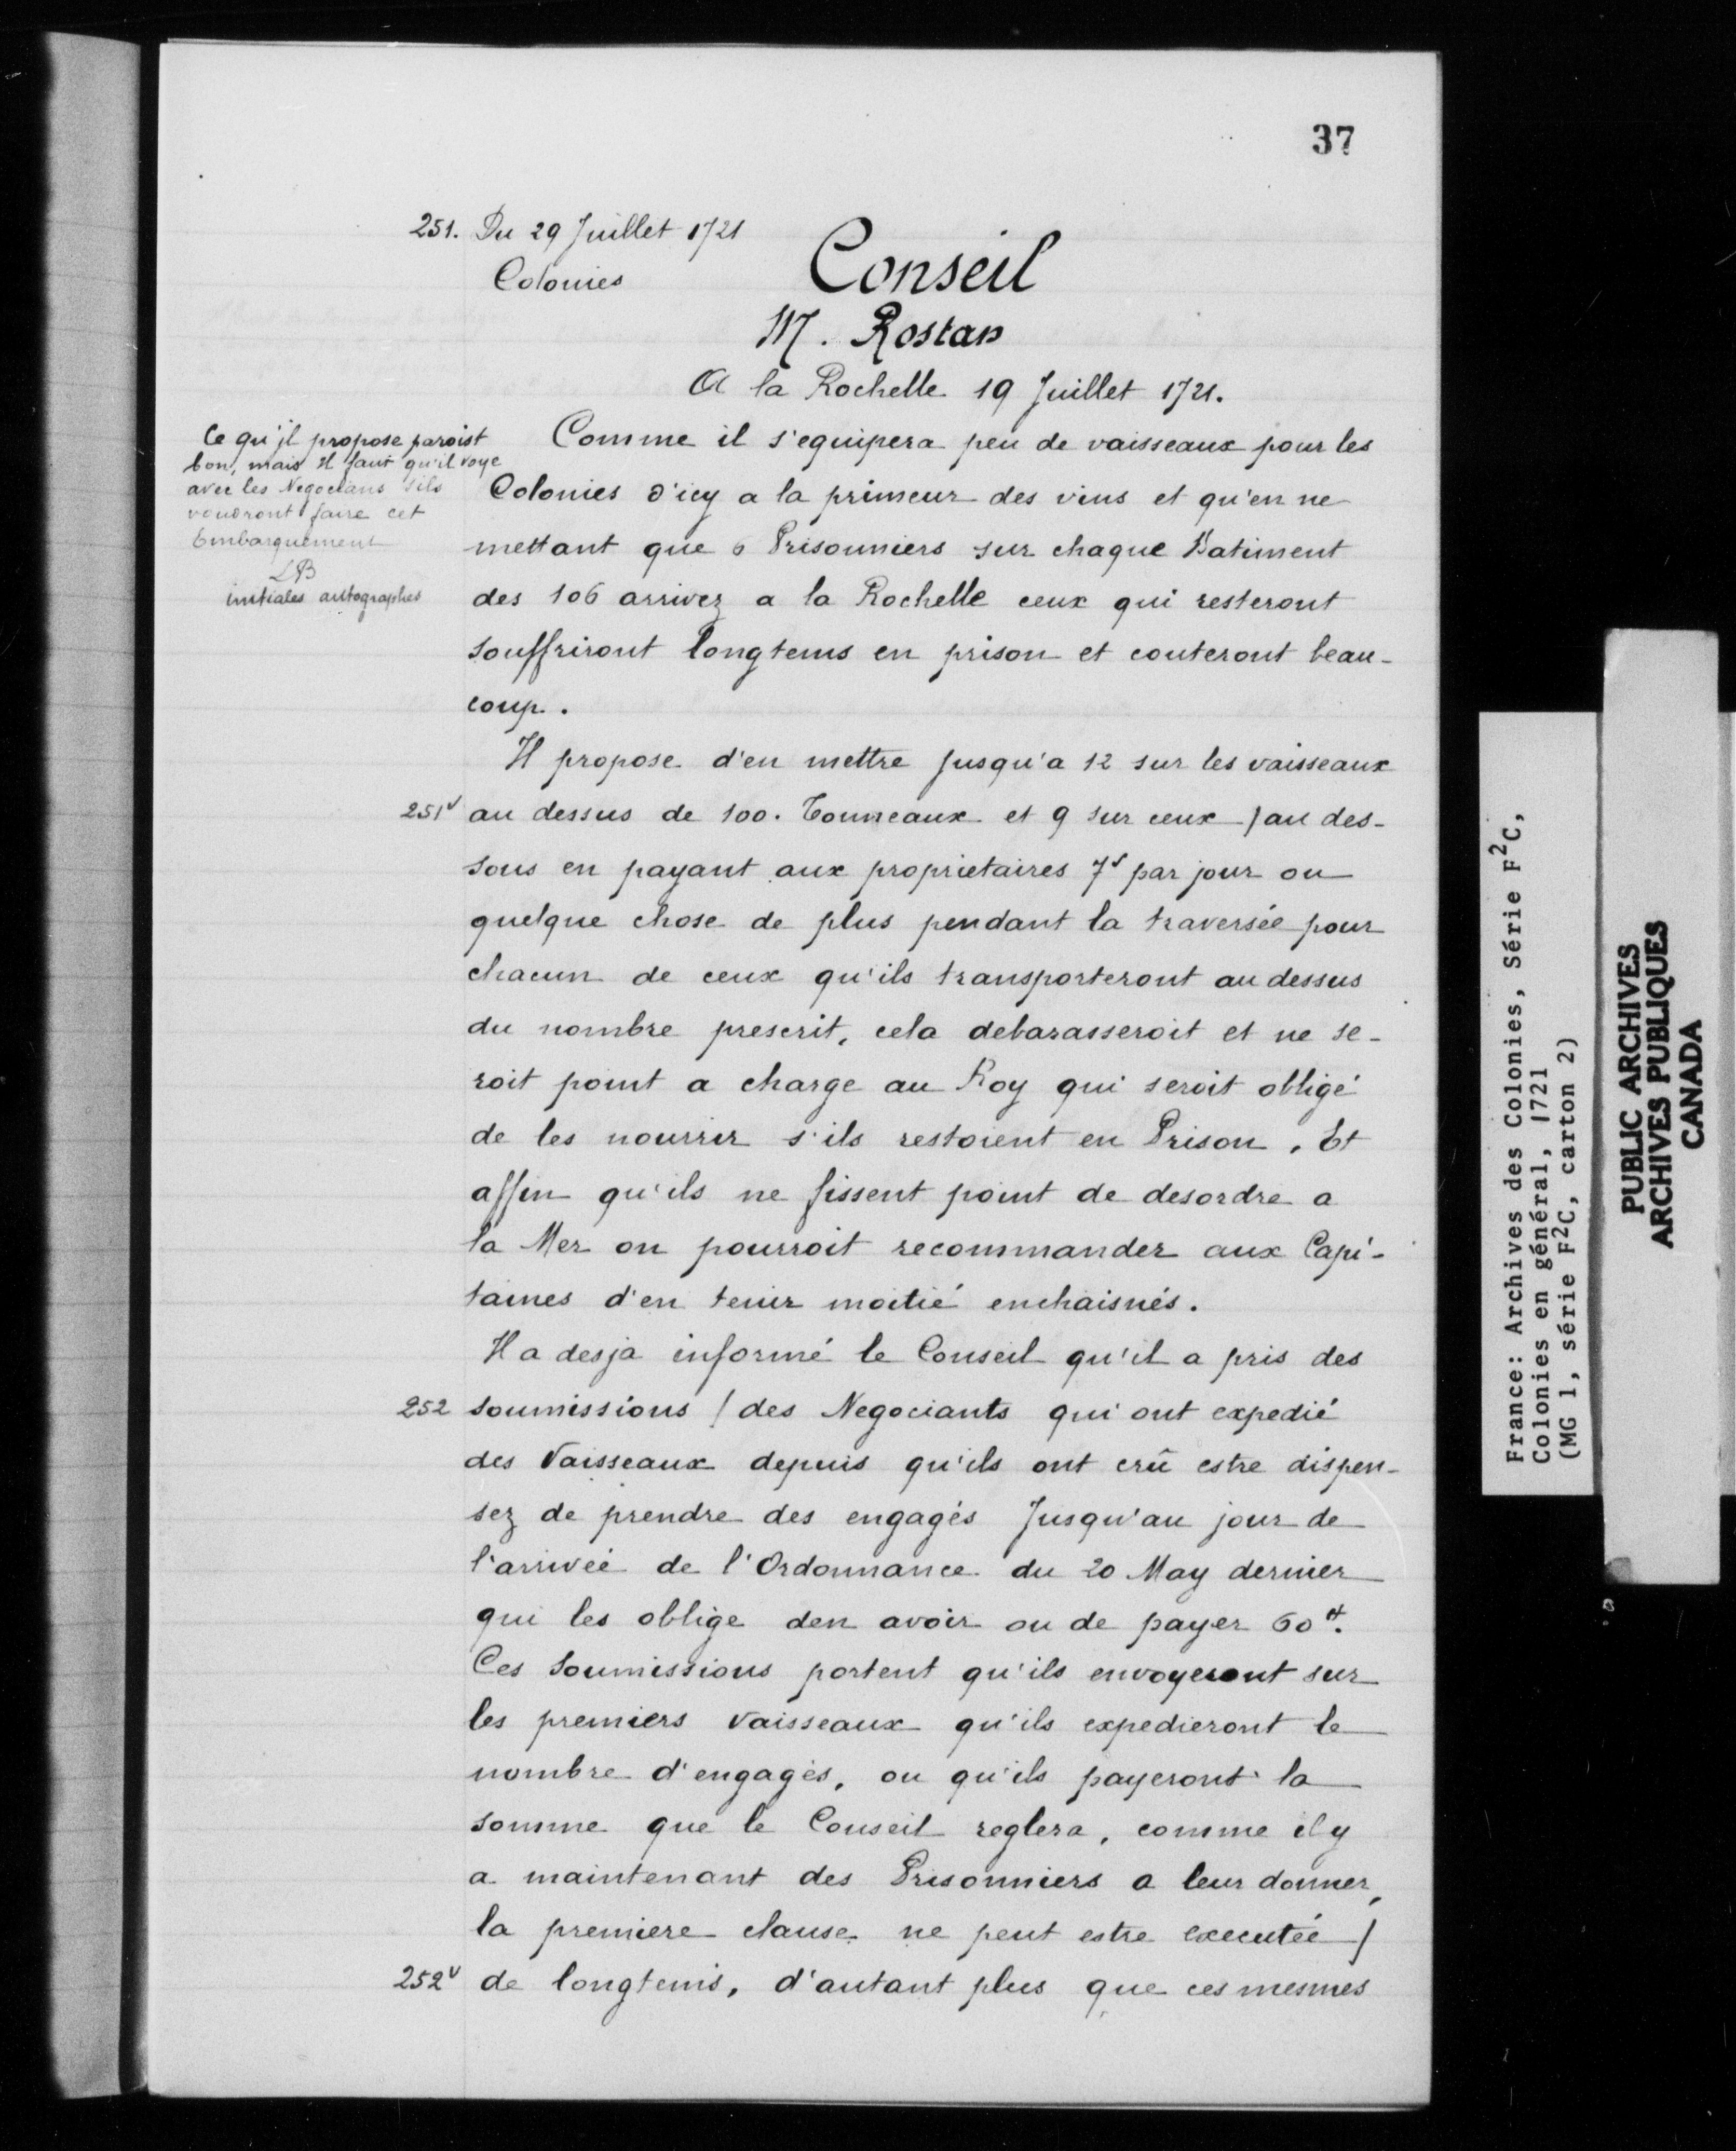 37
251. Du 29 Juillet 1721
Colonies
Conseil
M. Rostan
A la Rochelle 19 Juillet 1721.
Ce qu'il propose paroist
bon, mais il faut qu'il voye
avec les Negocians s'ils
voudront faire cet
Embarquement
LB
initiales autographes
Comme il s'equipera peu de vaisseaux pour les
Colonies d'icy a la primeur des vins et qu'en ne
mettant que 6 Prisonniers sur chaque Batiment
des 106 arrivez a la Rochelle ceux qui resteront
souffriront longtems en prison et couteront beau-
coup.
Il propose d'en mettre jusqu'a 12 sur les vaisseaux
251v au dessus de 100. Tonneaux et 9 sur ceux / au des-
sous en payant aux proprietaires 7s par jour ou
quelque chose de plus pendant la traversée pour
chacun de ceux qu'ils transporteront au dessus
du nombre prescrit, cela debarasseroit et ne se-
roit point a charge au Roy qui seroit obligé
de les nourrir s'ils restoient en Prison. Et
affin qu'ils ne fissent point de desordre a
la Mer on pourroit recommander aux Capi-
taines d'en tenir moitié enchaisnés.
Il a desja informé le Conseil qu'il a pris des
252 soumissions / des Negociants qui ont expedié
des Vaisseaux depuis qu'ils ont crû estre dispen-
sez de prendre des engagés Jusqu'au jour de
l'arrivée de l'Ordonnance du 20 May dernier
qui les oblige den avoir ou de payer 60₶.
Ces Soumissions portent qu'ils envoyeront sur
les premiers Vaisseaux qu'ils expedieront le
nombre d'engagés, ou qu'ils payeront la
somme que le Conseil reglera, comme il y
a maintenant des Prisonniers a leur donner,
la premiere clause ne peut estre executée /
252v de longtems, d'autant plus que ces mesmes
France: Archives des Colonies, Série F²C,
Colonies en général, 1721
(MG 1, série F²C, carton 2)
PUBLIC ARCHIVES
ARCHIVES PUBLIQUES
CANADA